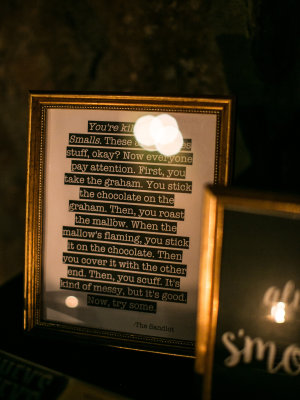 You're
Smalls. These
stuff, okay? Now everyone
pay attention. First, you
take the graham. You stick
the chocolate on the
graham. Then, you roast
the mallow. When the
mallow's flaming, you stick
it on the chocolate. Then
you cover it with the other
end. Then, you scuff. It's
kind of messy, but it's good.
Now, try some.
-The Sandlot
s'mo